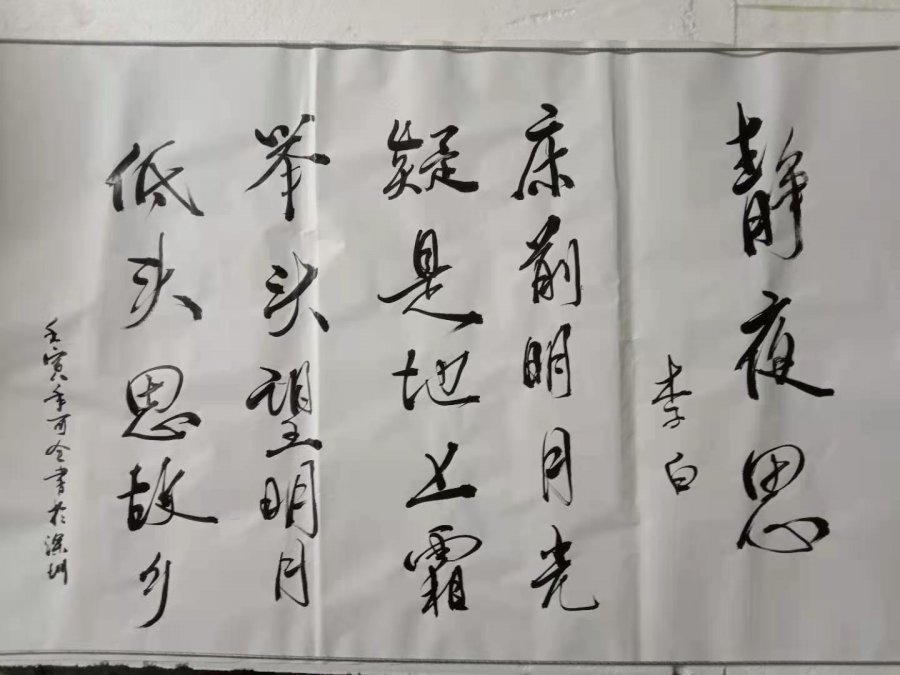 静夜思
李白
床前明月光
疑是地上霜
举头望明月
低头思故乡
壬寅年可令书于深圳